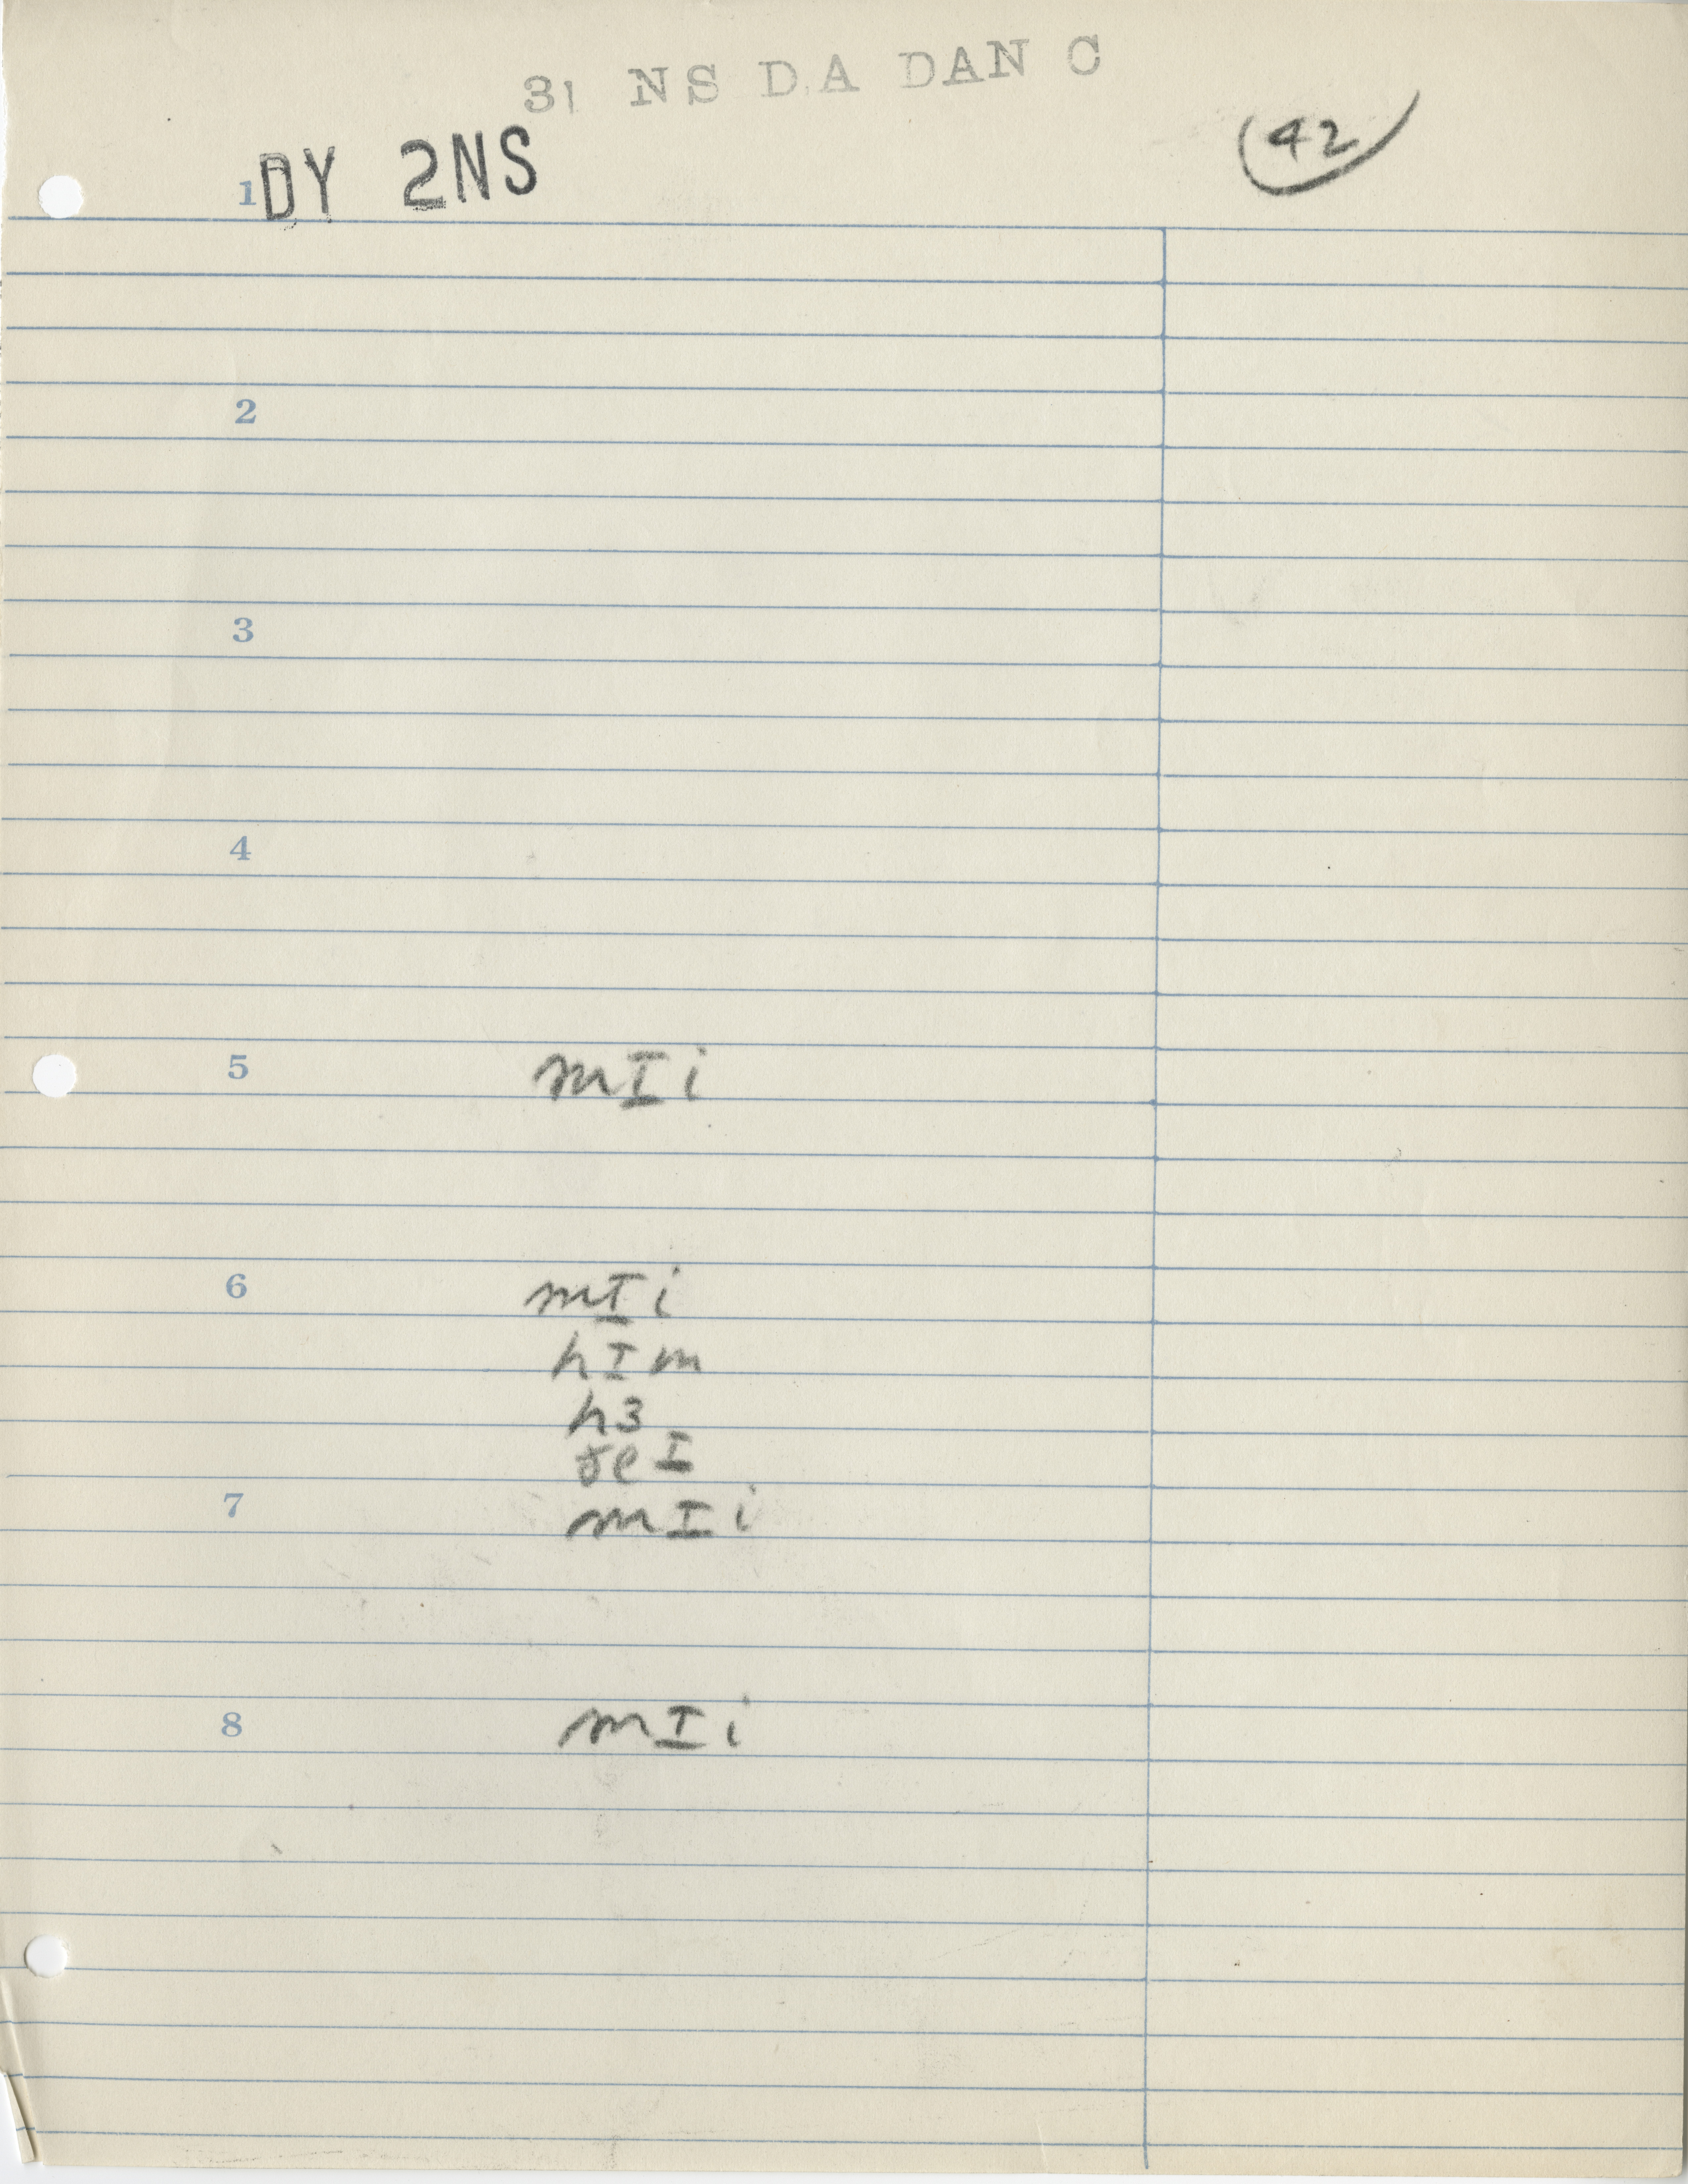 31 NS DA DAN C
42
1 DY 2NS
2
3
4
5 mIi
6 mIi
hIm
hɜ
ðeI
7 mIi
8 mIi